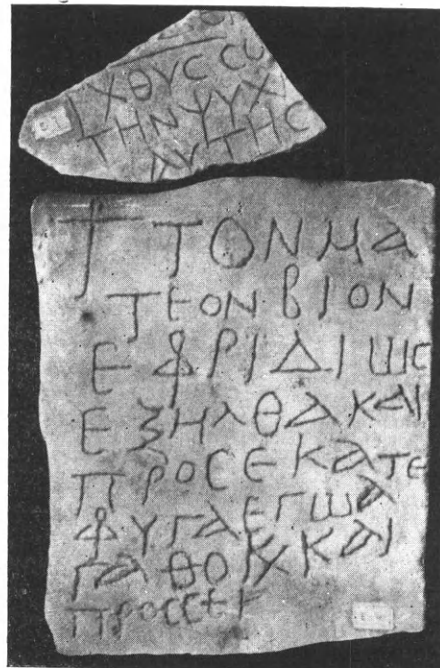 ΙΧΘΥC CΩ
ΤΗΝ ΨΥΧ
ΑΥΤΗC
† ΤΟΝ ΜΑ
ΤΕΟΝ ΒΙΟΝ
ΕΦΡΙΔΙШC
ΕΞΗΛΘΑ ΚΑΙ
ΠΡΟC Ε ΚΑΤΕ
ΦΥΓΑ ΕΓШ Α
ΓΑΘΟΙΧ ΚΑΙ
ΠΡΟC CΕ Γ